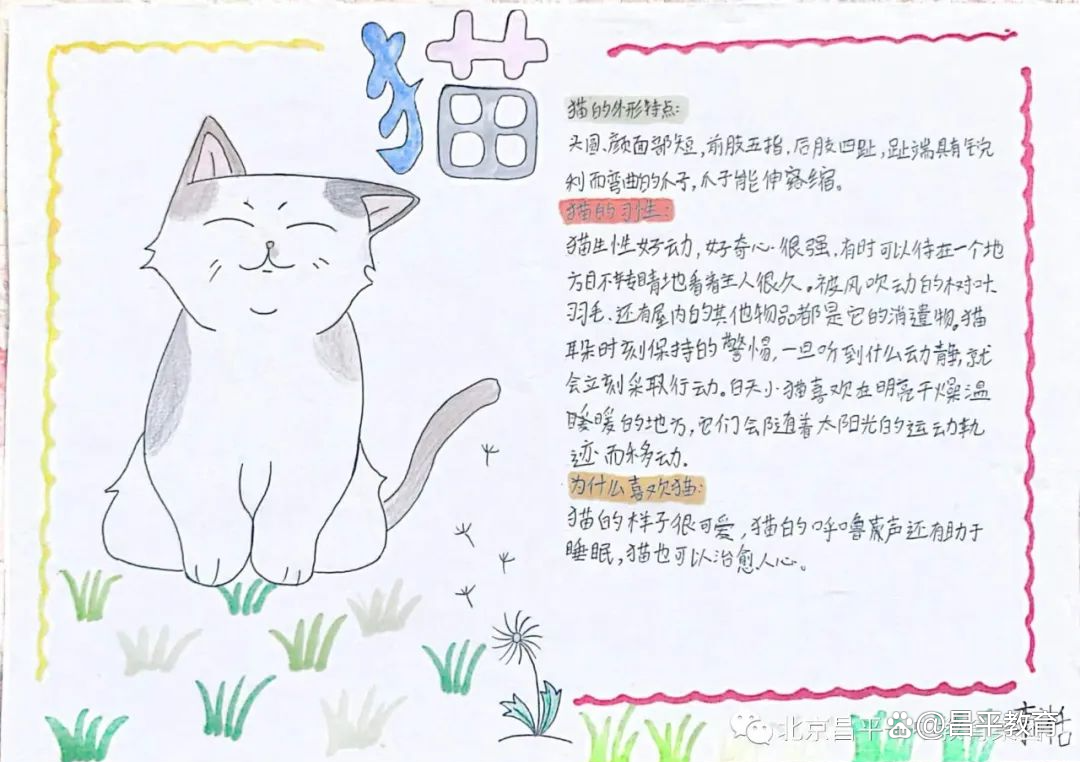 猫
猫的外形特点:
头圆、颜面部短,前肢五指,后肢四趾,趾端具有锐
利而弯曲的爪子,爪子能伸缩。
猫的习性:
猫生性好动,好奇心很强,有时可以待在一个地
方目不转睛地看着主人很久。被风吹动的树叶
羽毛、还有屋内的其他物品都是它的消遣物。猫
耳朵时刻保持的警惕,一旦听到什么动静,就
会立刻采取行动。白天小猫喜欢在明亮干燥温
暖的地方,它们会随着太阳光的运动轨
迹而移动.
为什么喜欢猫:
猫的样子很可爱,猫的呼噜声还有助于
睡眠,猫也可以治愈人心。
北京昌平
@昌平教育